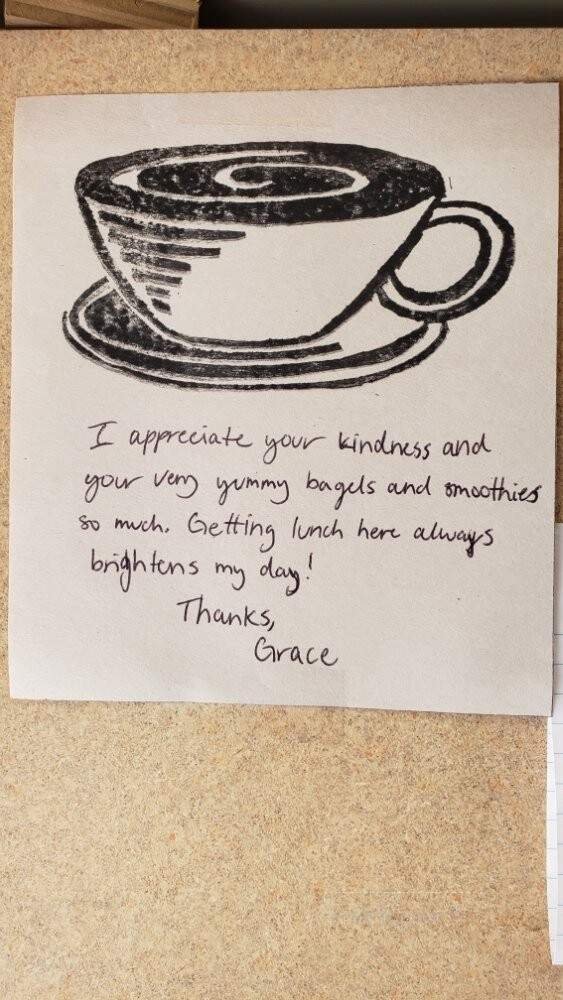 I appreciate your kindness and
your very yummy bagels and smoothies
so much. Getting lunch here always
brightens my day!
Thanks,
Grace